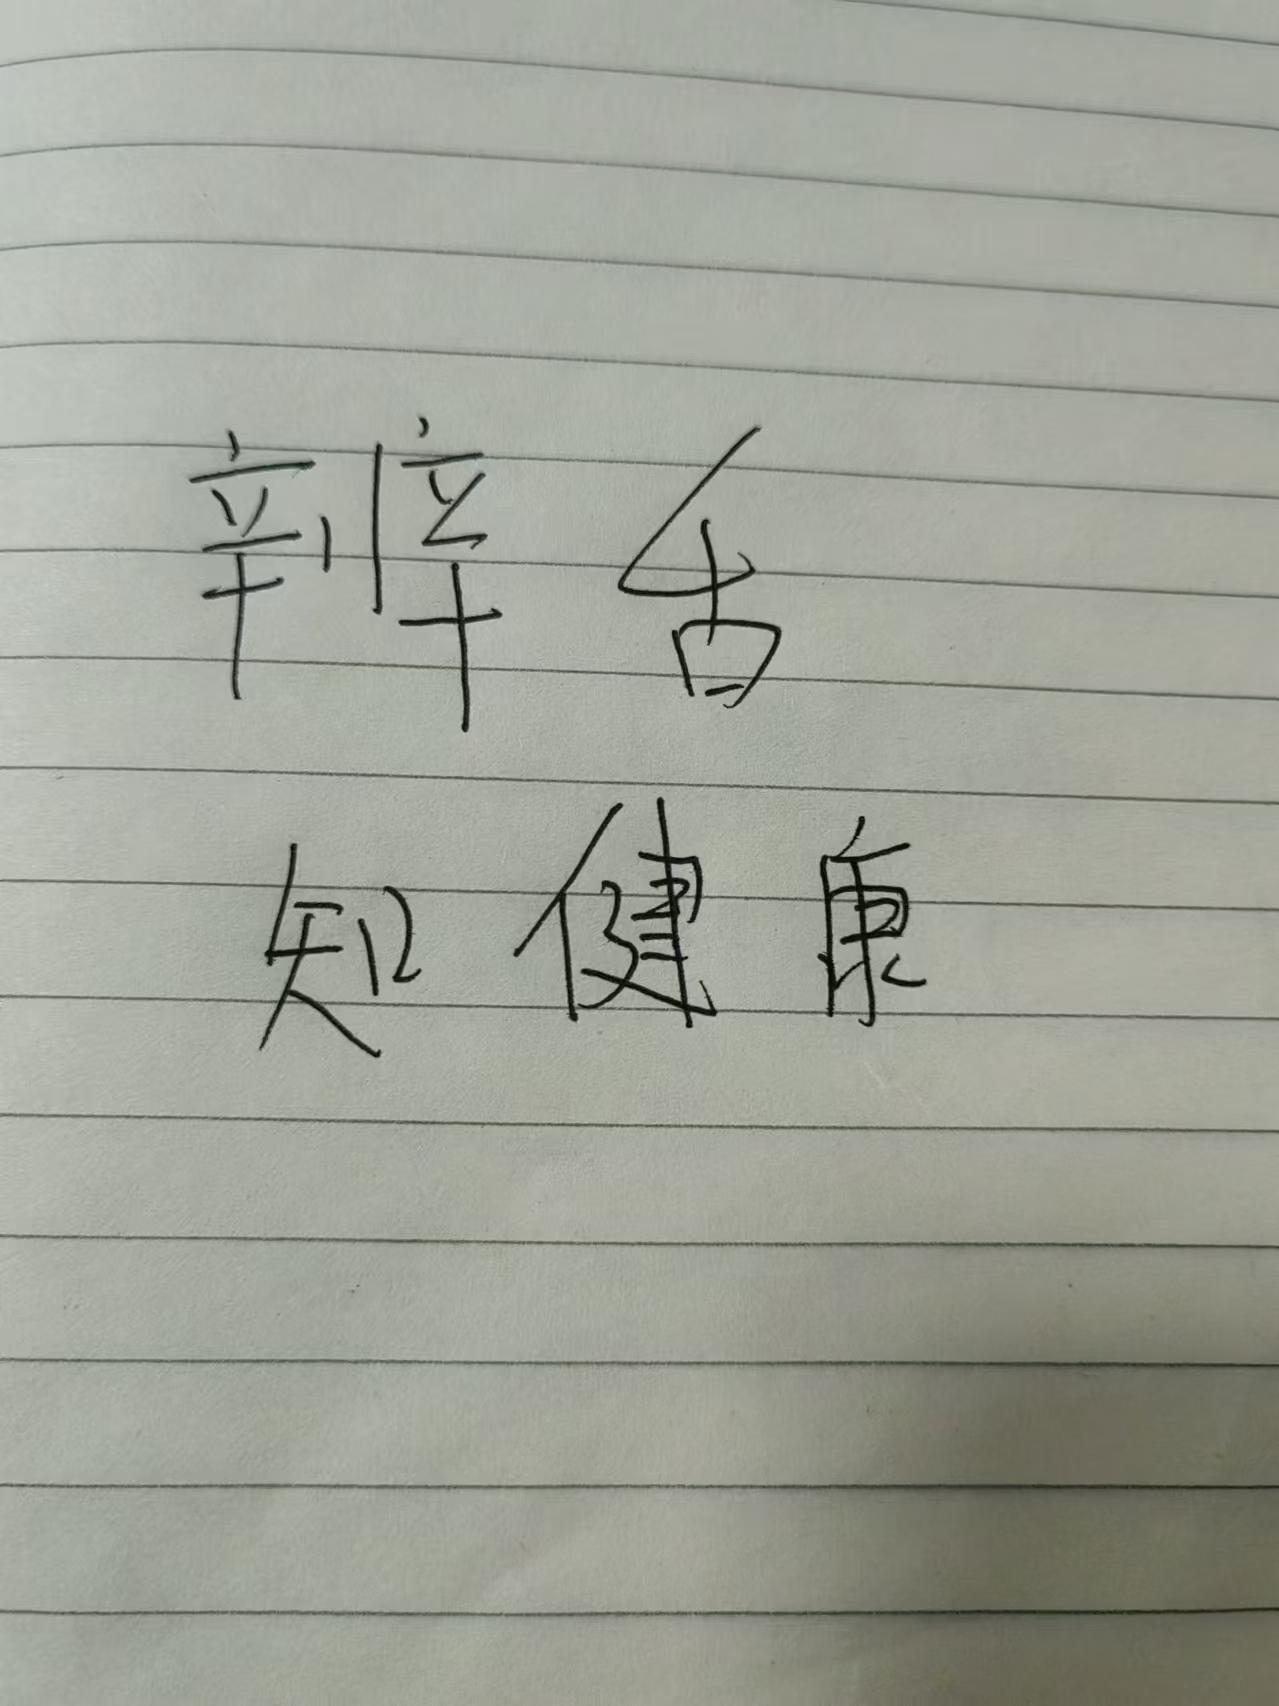 辨舌
知健康